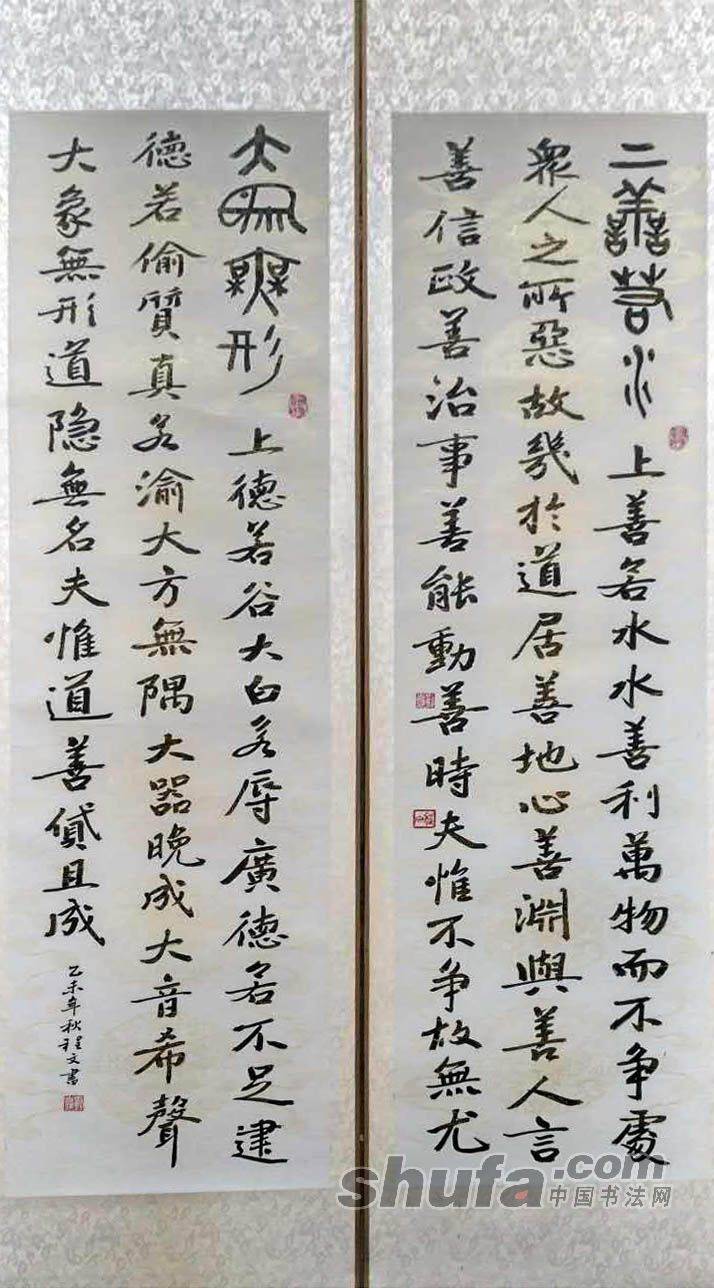 上善若水 上善若水水善利萬物而不争處
衆人之所惡故幾於道居善地心善淵與善人言
善信政善治事善能動善時夫惟不争故無尤
大象無形 上德若谷大白若辱廣德若不足建
德若偷質真若渝大方無隅大器晚成大音希聲
大象無形道隐無名夫惟道善貸且成
乙未年秋程文書
shufa.com
中国书法网